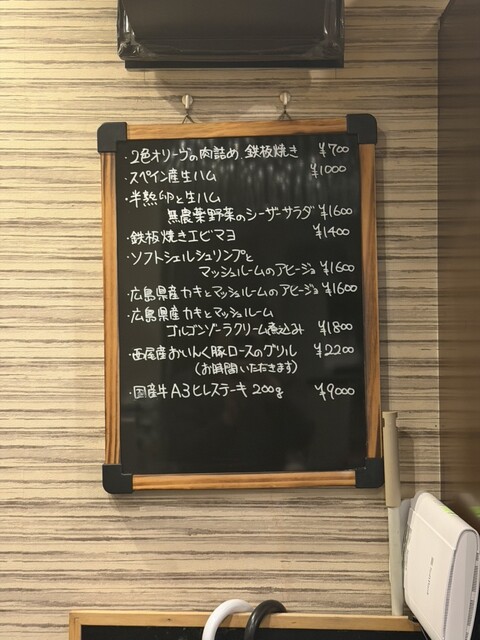 ・2色オリーヴの肉詰め、鉄板焼き ¥700
・スペイン産生ハム ¥1000
・半熟卵と生ハム
無農薬野菜のシーザーサラダ ¥1600
・鉄板焼きエビマヨ ¥1400
・ソフトシェルシュリンプと
マッシュルームのアヒージョ ¥1600
・広島県産カキとマッシュルームのアヒージョ ¥1600
・広島県産カキとマッシュルーム
ゴルゴンゾーラクリーム煮込み ¥1800
・西尾産おいんく豚ロースのグリル ¥2200
(お時間いただきます)
・国産牛A3ヒレステーキ 200g ¥9000